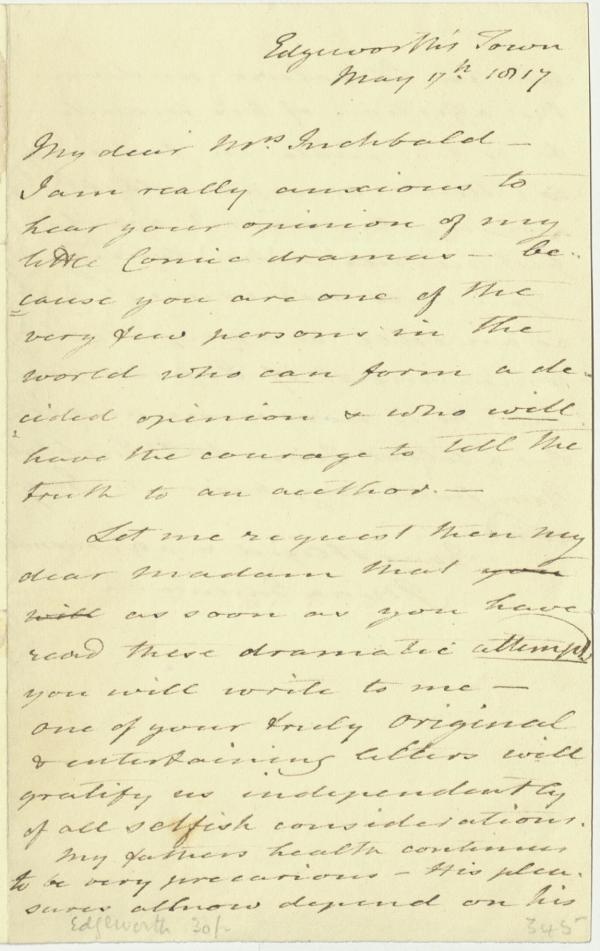 Edgeworth's Town
May 17th 1817
My dear Mrs Inchbald —
I am really anxious to
hear your opinion of my
little Comic dramas — be-
cause you are one of the
very few persons in the
world who can form a de-
cided opinion & who will
have the courage to tell the
truth to an author. —
Let me request then my
dear Madam that you
will as soon as you have
read these dramatic attempts
you will write to me —
One of your truly original
& entertaining letters will
gratify us independently
of all selfish considerations.
My fathers health continues
to be very precarious — His plea-
sures all now depend on his
Edgeworth 30/-
345